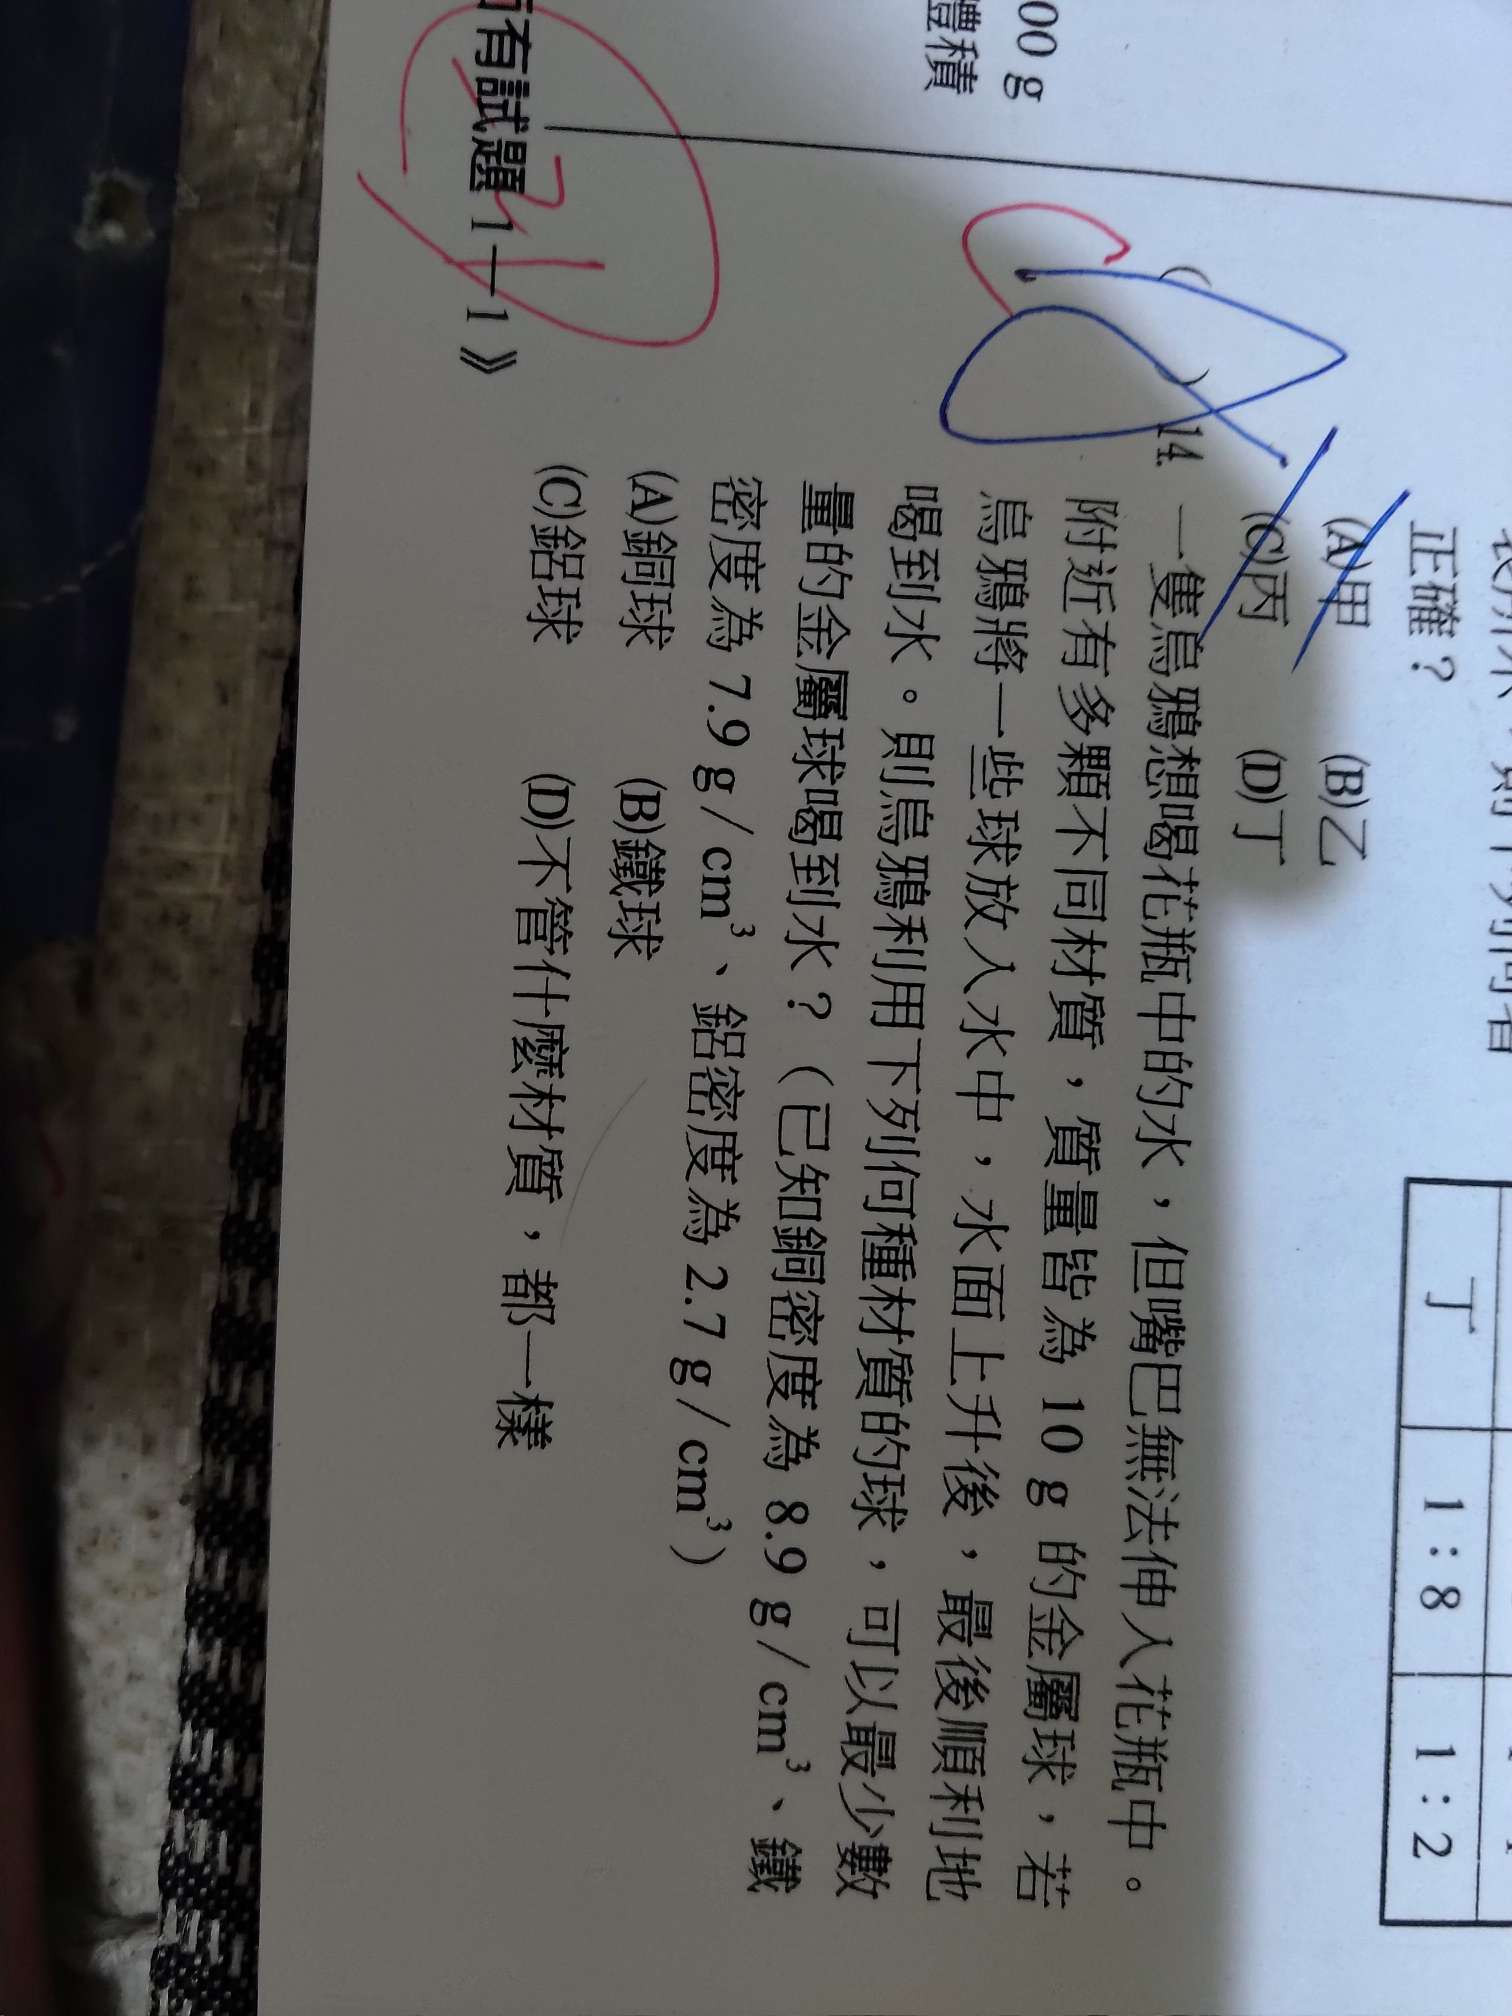 00 g
體積
正確？
(A)甲 (B)乙
(C)丙 (D)丁
丁 1:8 1:2
( ) 14. 一隻烏鴉想喝花瓶中的水，但嘴巴無法伸入花瓶中。
附近有多顆不同材質，質量皆為 10 g 的金屬球，若
烏鴉將一些球放入水中，水面上升後，最後順利地
喝到水。則烏鴉利用下列何種材質的球，可以最少數
量的金屬球喝到水？（已知銅密度為 8.9 g/cm³、鐵
密度為 7.9 g/cm³、鋁密度為 2.7 g/cm³）
(A)銅球 (B)鐵球
(C)鋁球 (D)不管什麼材質，都一樣
有試題1－1》